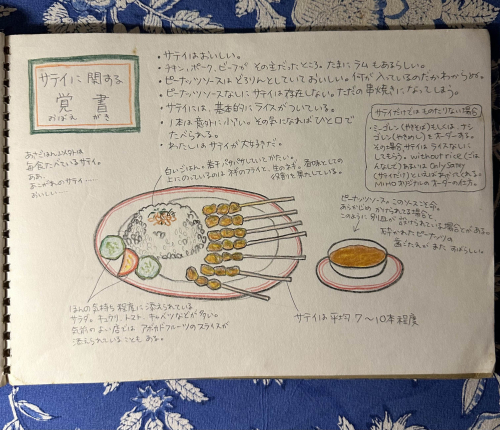 サテイに関する
覚書
おぼえ がき
・サテイはおいしい。
・チキン、ポーク、ビーフが その主だったところ。たまに ラム もあるらしい。
・ピーナッツソースは どろりんとしていておいしい。何が入っているのかわからぬが。
・ピーナッツソースなしに サテイは存在しない。ただの串焼きになってしまう。
・サテイには、基本的に ライスが ついている。
・1本は意外に小さい。その気になれば ひと口で
たべられる。
・わたしは サテイが 大好きだ。
サテイだけでは ものたりない場合
・ミーゴレン(やきそば)もしくは、ナシ
ゴレン(やきめし)を オーダーする。
その場合 サテイは ライスなしに
してもらう。without rice(ごは
んなどと)あるいは Only Satey
(サテイだけ)といえば
オリジナルのオーダーの仕方。
あさごはん以外は
毎食たべているサテイ。
ああ、
あこがれのサテイ……
おいしい……
白いごはん。素子パサパサしていてかたい。
上にのっているのは フライと、生の
ピーナッツソース。このソースこそ命。
あらかじめ かけられてる場合と
このように 別皿が 設けられている場合とがある。
ピーナッツの
また すばらしい。
ほんの気持ち程度に添えられている
サラダ。キュウリ、トマト、キャベツなどが多い。
気前のよい店では アボカドフルーツのスライスが
添えられていることもある。
サテイは 平均 7〜10本程度